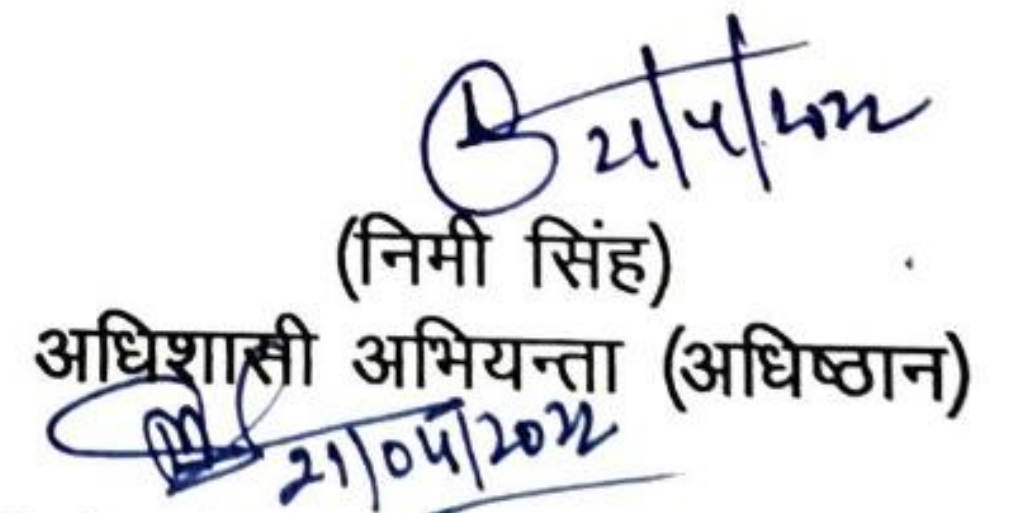 21/4/2022
(निमी सिंह)
अधिशासी अभियन्ता (अधिष्ठान)
21/04/2022